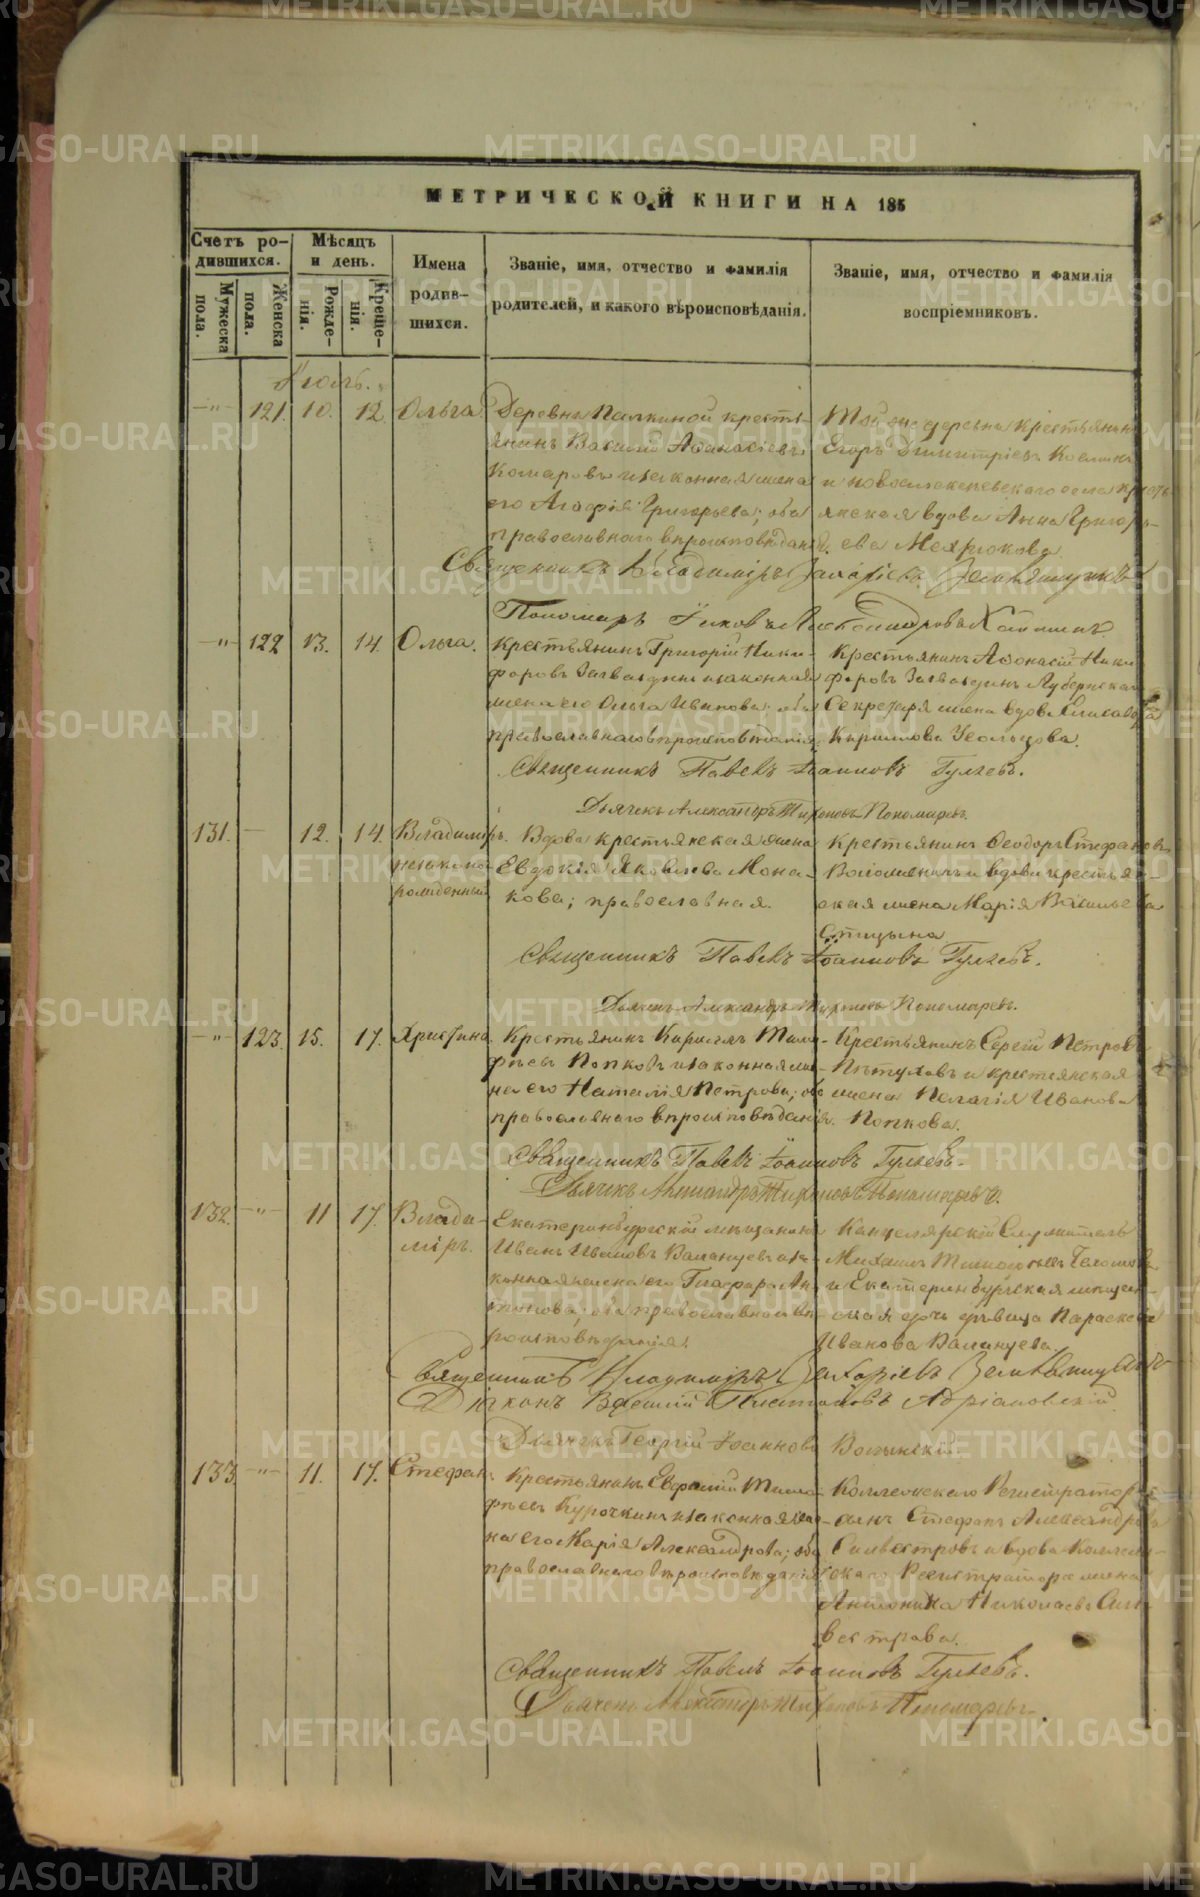 МЕТРИЧЕСКОЙ КНИГИ НА 185
Счетъ ро-
дившихся.
Мѣсяцъ
и день.
Имена
родив-
шихся.
Званіе, имя, отчество и фамилія
родителей, и какого вѣроисповѣданія.
Званіе, имя, отчество и фамилія
воспріемниковъ.
Мужеска
пола.
Женска
пола.
Рожде-
нія.
Креще-
нія.
Іюль.
—"— 121. 10. 12. Ольга.
Деревни Палкиной кресть-
янинъ Василій Аѳанасіевъ
Комаровъ и законная жена
его Агафія Григорьева; оба
православнаго вѣроисповѣданія.
Той же деревни крестьянинъ
Егоръ Димитріевъ
и новоалексеевскаго села кресть-
янская вдова Анна Григорь-
ева Мехрюкова.
Священникъ Владиміръ Захаріевъ Земляницынъ
Пономарь Іаковъ Александровъ
—"— 122 13. 14. Ольга.
Крестьянинъ Григорій Ники-
форовъ и законная
жена его Ольга Иванова; оба
православнаго вѣроисповѣданія.
Крестьянинъ Аѳонасій Ники
форовъ Губернскаго
Секретаря жена вдова Елисавета
Кириллова
Священникъ Павелъ Іоанновъ Гуляевъ.
Дьячекъ Александръ Тихоновъ Пономаревъ.
131. — 12. 14. Владиміръ.
незаконно-
рожденный
Вдова крестьянская жена
Евдокія Яковлева Мона-
кова; православная.
Крестьянинъ Ѳеодоръ Стефановъ
и вдова крестьян-
ская жена Марія Васильева
Спицына
Священникъ Павелъ Іоанновъ Гуляевъ.
Дьячекъ Александръ Тихоновъ Пономаревъ.
—"— 123. 15. 17. Христина.
Крестьянинъ Кириллъ Тимо-
фѣевъ Попковъ и законная же-
на его Наталія Петрова; оба
православнаго вѣроисповѣданія.
Крестьянинъ Сергій Петровъ
Пѣтуховъ и крестьянская
жена Пелагія Иванова
Попкова.
Священникъ Павелъ Іоанновъ Гуляевъ.
Дьячекъ Александръ Тихоновъ Пономаревъ.
132. —"— 11 17. Влади-
міръ.
Екатеринбургскій мѣщанинъ
Иванъ Ивановъ и за-
конная жена его Глафира Ан-
тонова; оба православнаго вѣ-
роисповѣданія.
Канцелярскій Служитель
Михаилъ
и Екатеринбургская мѣщан-
ская дочь дѣвица Параскева
Иванова
Священникъ Владиміръ Захаріевъ Земляницынъ
Діаконъ Василій Платоновъ Адріановскій.
Дьячекъ Георгій Іоанновъ Волынскій.
133. —"— 11. 17. Стефанъ.
Крестьянинъ Евфимій Тимо-
фѣевъ Курочкинъ и законная же-
на его Марія Александрова; оба
православнаго вѣроисповѣданія
Коллежскаго Регистратора
сынъ Стефанъ Александровъ
Сильвестровъ и вдова Коллеж-
скаго Регистратора жена
Николаева Силь-
вестрова.
Священникъ Павелъ Іоанновъ Гуляевъ.
Дьячекъ Александръ Тихоновъ Пономаревъ.
METRIKI.GASO-URAL.RU